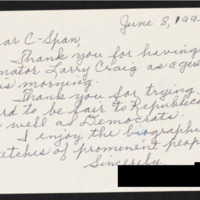 June 8, 199
ar C-Span,
Thank you for having
nator Larry Craig as a gue
is morning.
Thank you for trying
rd to be fair to Republica
well as Democrats.
I enjoy the biographi
etches of prominent peop
Sincerely